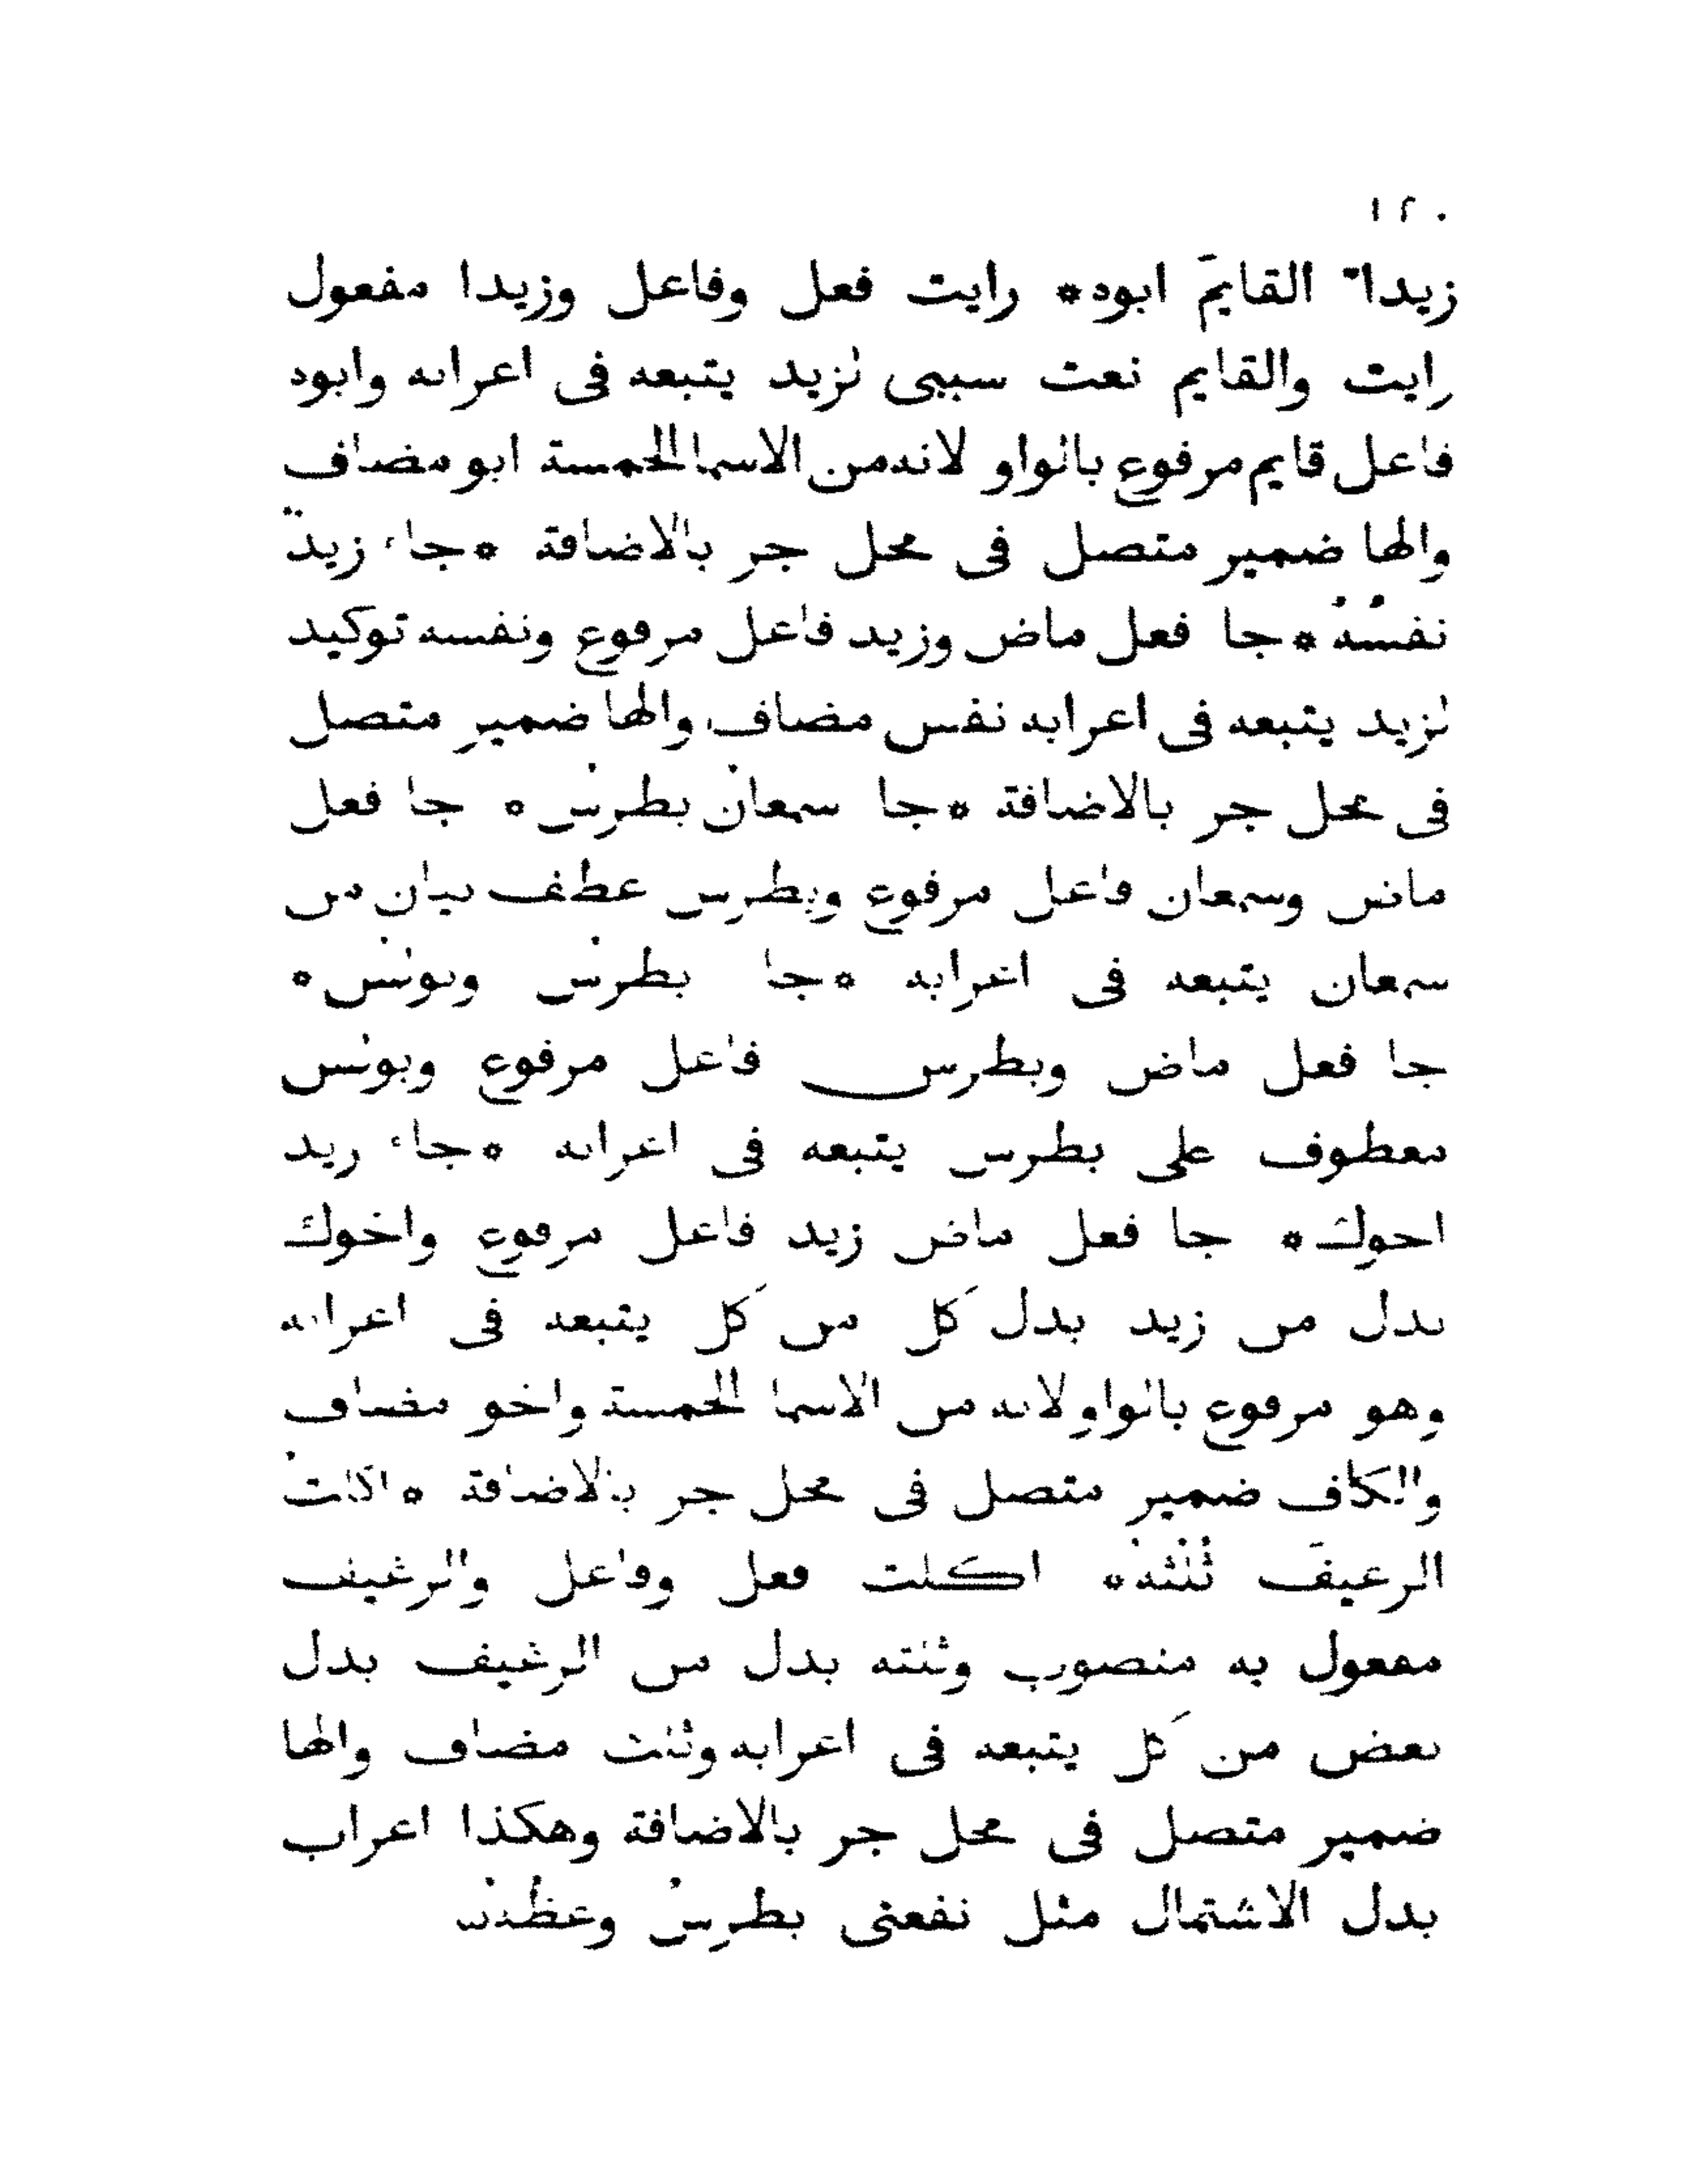 ١٢٠
زيداً القايمَ ابوه * رايت فعل وفاعل وزيدا مفعول
رايت والقايم نعت سببى لزيد يتبعه فى اعرابه وابوه
فاعل قايم مرفوع بالواو لانه من الاسما الخمسة ابو مضاف
والها ضمير متصل فى محل جر بالاضافة * جاء زيدٌ
نفسُهُ * جا فعل ماض وزيد فاعل مرفوع ونفسه توكيد
لزيد يتبعه فى اعرابه نفس مضاف والها ضمير متصل
فى محل جر بالاضافة * جا سمعانُ بطرسُ * جا فعل
ماض وسمعان فاعل مرفوع وبطرس عطف بيان من
سمعان يتبعه فى اعرابه * جا بطرسُ وبولسُ *
جا فعل ماض وبطرس فاعل مرفوع وبولس
معطوف على بطرس يتبعه فى اعرابه * جاء زيد
اخوك * جا فعل ماض زيد فاعل مرفوع واخوك
بدل من زيد بدل كل من كل يتبعه فى اعرابه
وهو مرفوع بالواو لانه من الاسما الخمسة واخو مضاف
والكاف ضمير متصل فى محل جر بالاضافة * اكلتُ
الرغيفَ ثُلُثَه * اكلت فعل وفاعل والرغيف
مفعول به منصوب وثلثه بدل من الرغيف بدل
بعض من كل يتبعه فى اعرابه وثلث مضاف والها
ضمير متصل فى محل جر بالاضافة وهكذا اعراب
بدل الاشتمال مثل نفعنى بطرسُ